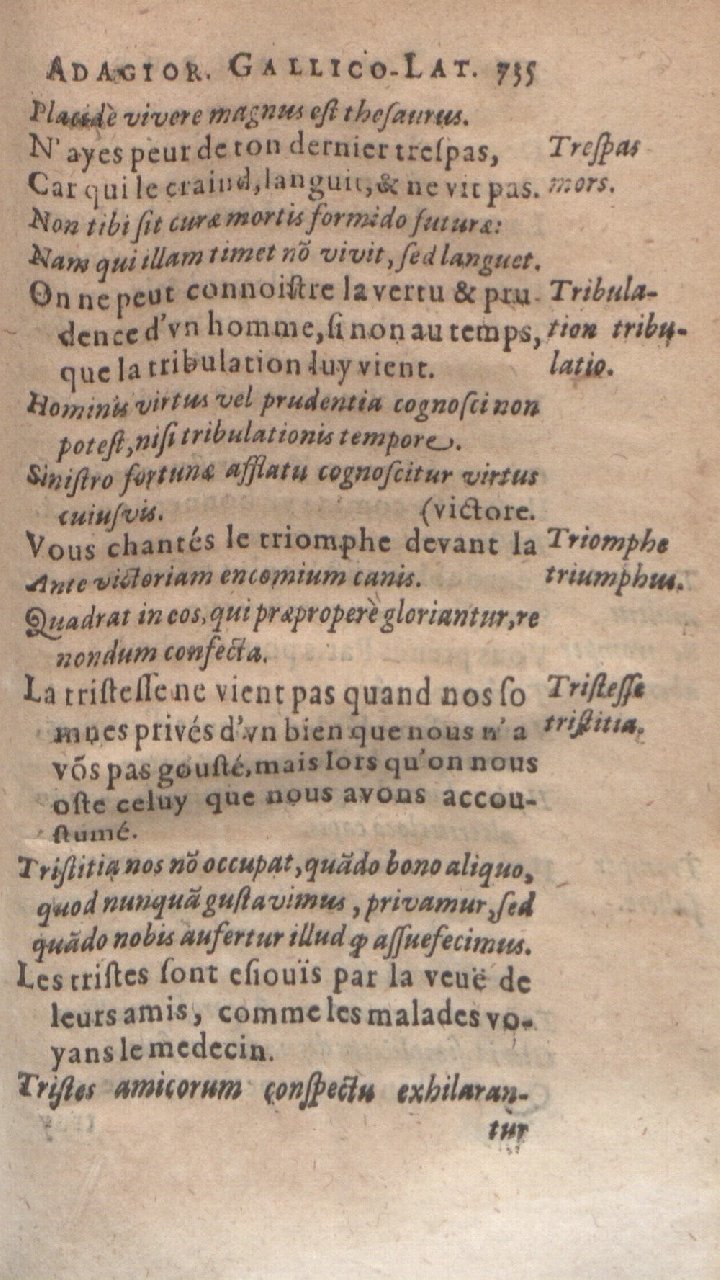 ADAGIOR. GALLICO-LAT. 735
Placidè vivere magnus est thesaurus.
N'ayes peur de ton dernier trespas,
Trespas
Car qui le craind, languit, & ne vit pas.
mors.
Non tibi sit curæ mortis formido futuræ:
Nam qui illam timet nõ vivit, sed languet.
On ne peut connoistre la vertu & pru-
Tribula-
dence d'vn homme, si non au temps,
tion tribu-
que la tribulation luy vient.
latio.
Hominis virtus vel prudentia cognosci non
potest, nisi tribulationis tempore.
Sinistro fortunæ afflatu cognoscitur virtus
cuiusvis. (victore.
Vous chantés le triomphe devant la
Triomphe
Ante victoriam encomium canis.
triumphus.
Quadrat in eos, qui præproperè gloriantur, re
nondum confecta.
La tristesse ne vient pas quand nos so
Tristesse
mnes privés d'vn bien que nous n'a
tristitia.
võs pas gousté, mais lors qu'on nous
oste celuy que nous avons accou-
stumé.
Tristitia nos nõ occupat, quãdo bono aliquo,
quod nunquã gustavimus, privamur, sed
quãdo nobis aufertur illud ꝙ assuefecimus.
Les tristes sont esiouïs par la veuë de
leurs amis, comme les malades vo-
yans le medecin.
Tristes amicorum conspectu exhilaran-
tur